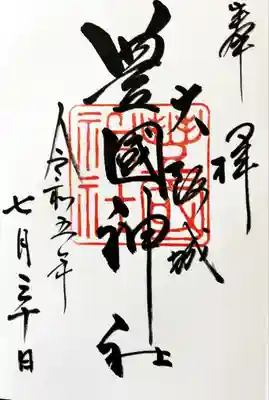 奉拝
大阪城
豊國神社
令和五年
七月三十日